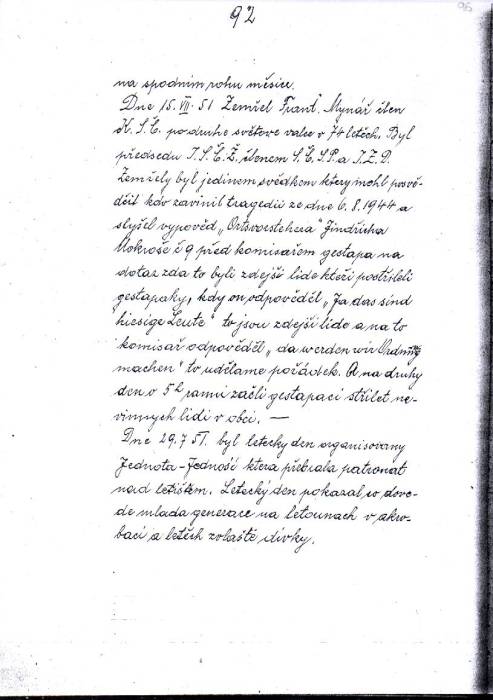 92
96
na spodním rohu měsíce.
Dne 15. VII. 51 Zemřel Frant. Mynář člen
K.S.Č. po druhe světove valce v 74 letech. Byl
předsedu T.S.Č.Ž. členem S.Č.S.P. a J.Z.D.
Zemřely byl jedinem svědkem ktery mohl posvě-
dčit kdo zavinil tragedii ze dne 6.8.1944 a
slyšel vypověd „Ortsvorstehera" Jindřicha
Mokroše č 9 před komisařem gestapa na
dotaz zda to byli zdejší lide kteři postřileli
gestapaky, kdy on odpověděl „Ja das sind
hiesige Leute" to jsou zdejši lide a na to
komisař odpověděl „da werden wir Ordnung
machen" to uděláme pořádek. A na druhy
den o 5h ranni začli gestapaci střilet ne-
vinnych lidi v obci. —
Dne 29.7 51. byl letecky den organisovany
Jednota-Jedność ktera přebrala patronat
nad letištěm. Letecký den pokazal co dove-
de mlada generace na letounach v akro-
bacii a letěch zvlaště divky.